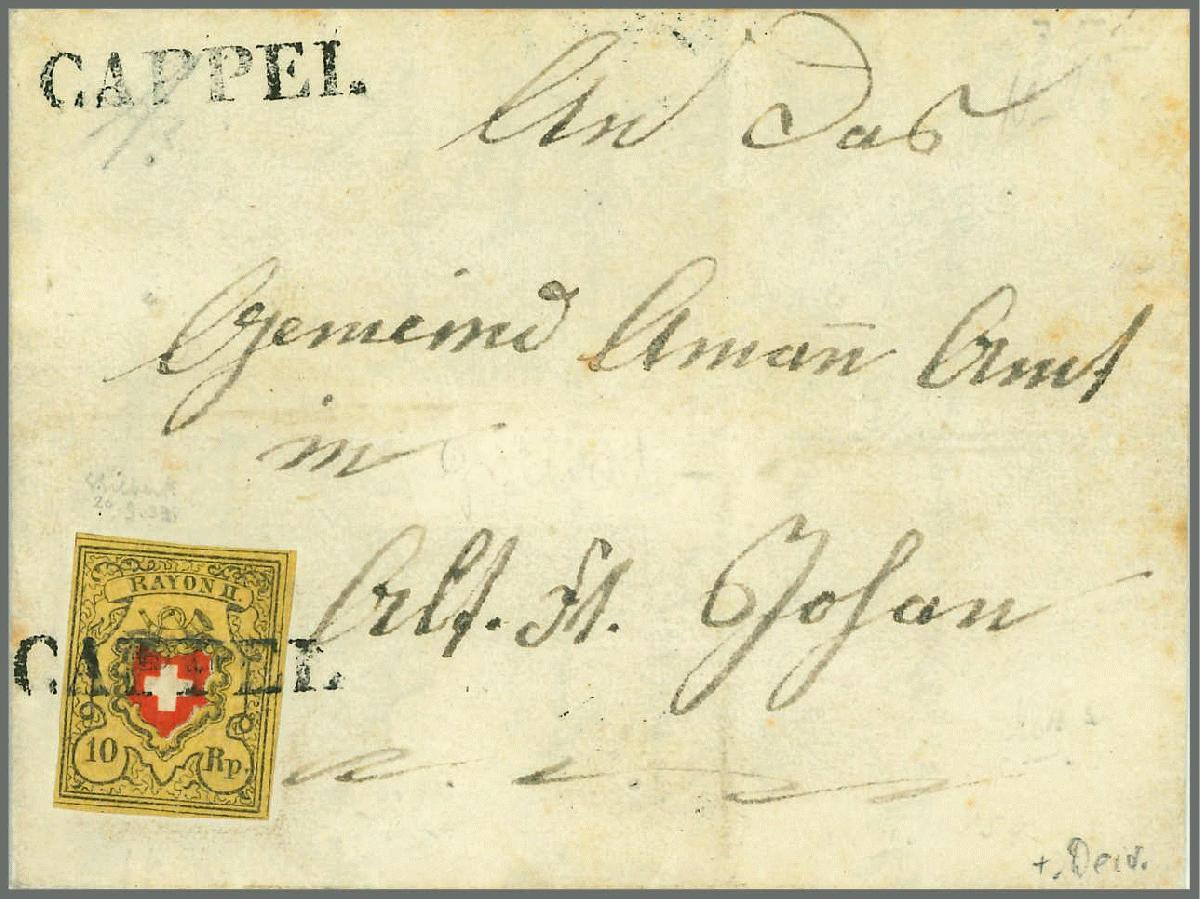 CAPPEL.
An Das
Gemeind Aman̄ Amt
in
Alt. St. Johan
RAYON II.
CAPPEL.
10 Rp.